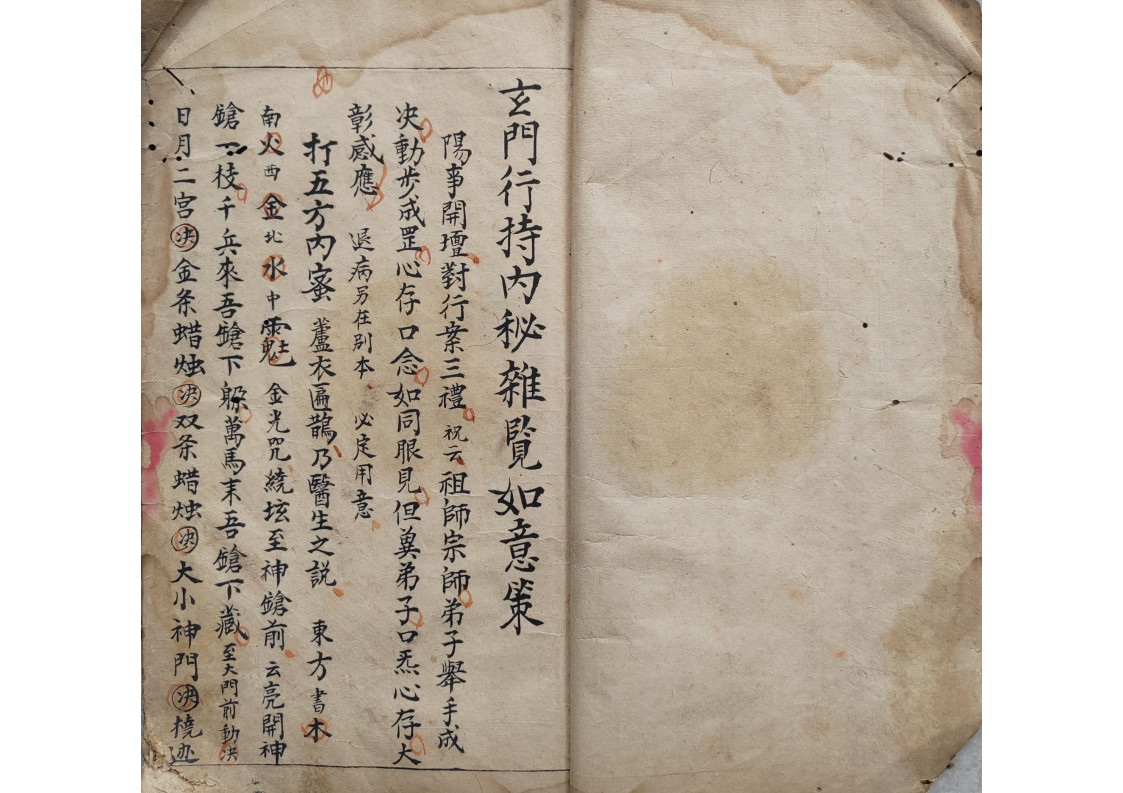 玄門行持内秘雜覧如意策
陽亊開壇對行案三禮祝云祖師宗師弟子舉手成
决動步成罡心存口念如同眼見但奠弟子口炁心存大
彰感應 退病另在别本 必定用意
打五方内蜜 蘆衣匾鵲乃醫生之説 東方書木
南火西金北水中䨻魁 金光咒繞坛至神鎗前云亮開神
鎗一枝千兵來吾鎗下躲萬馬来吾鎗下藏至大門前動决
日月二宫决金条蜡烛决双条蜡烛决大小神門决